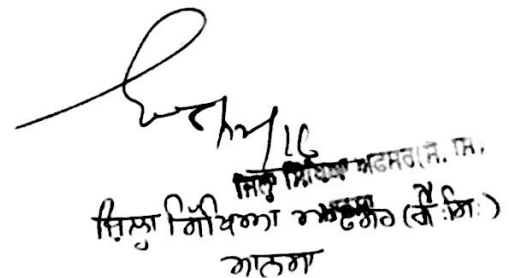 ਜਿਲ੍ਹਾ ਸਿੱਖਿਆ ਅਫਸਰ(ਸੈ. ਸਿ.
ਜ਼ਿਲ੍ਹਾ ਸਿੱਖਿਆ ਅਫਸਰ (ਸੈ:ਸਿ:)
ਮਾਨਸਾ